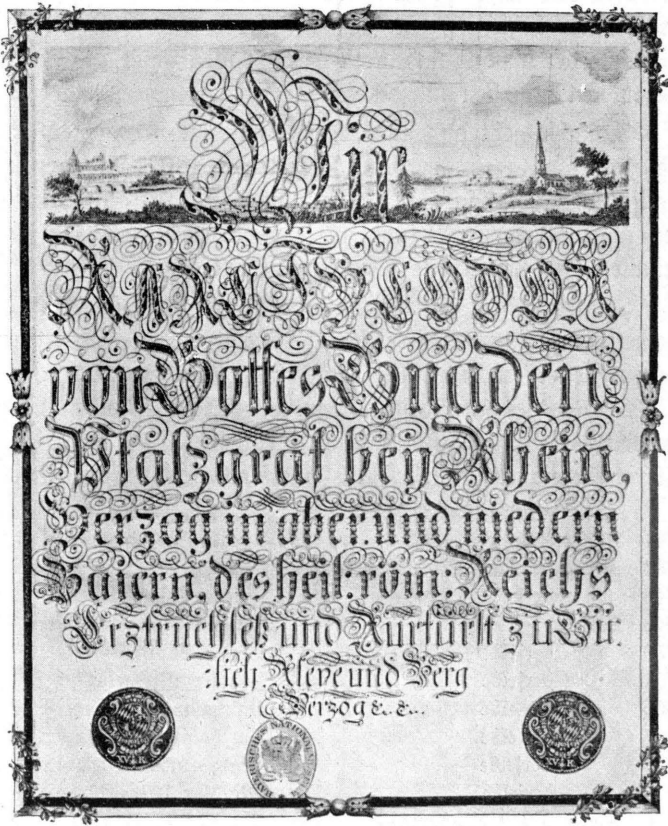 Wir
KARL THEODOR
von Gottes Gnaden
Pfalzgraf bey Rhein,
Herzog in ober. und niedern
Baiern, des heil: röm: Reichs
Erztruchseß und Kurfürst zu Gü:
:lich Kleve und Berg
Herzog &. &..